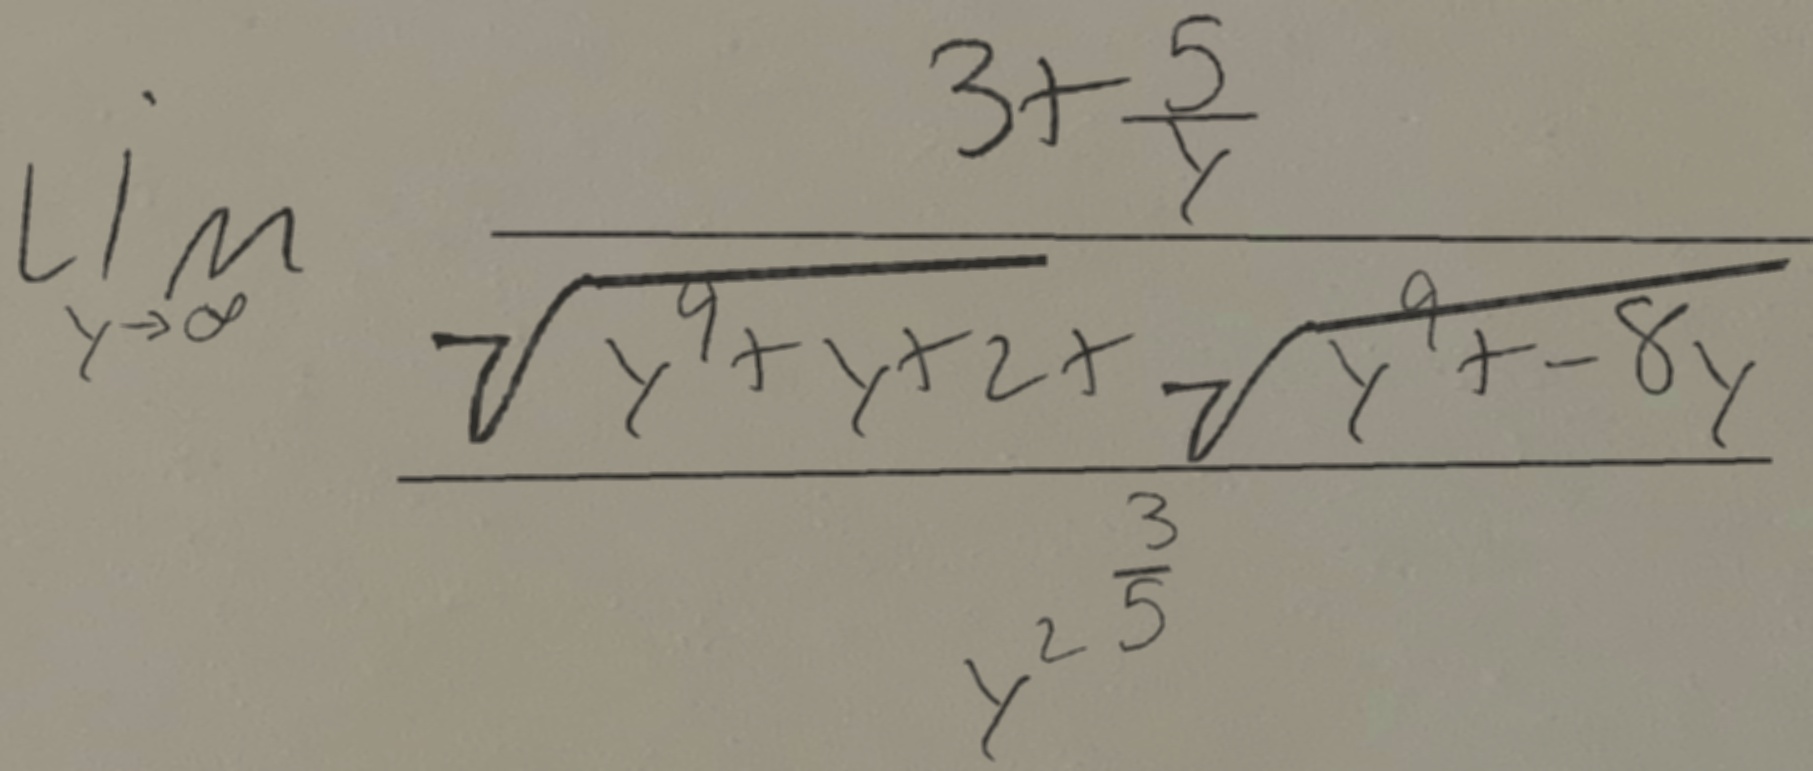 \lim_{y \to \infty} \frac{\frac{3 + \frac{5}{y}}{\sqrt{y^9 + y + 2} + \sqrt{y^9 + -8y}}}{y^{2^{\frac{3}{5}}}}